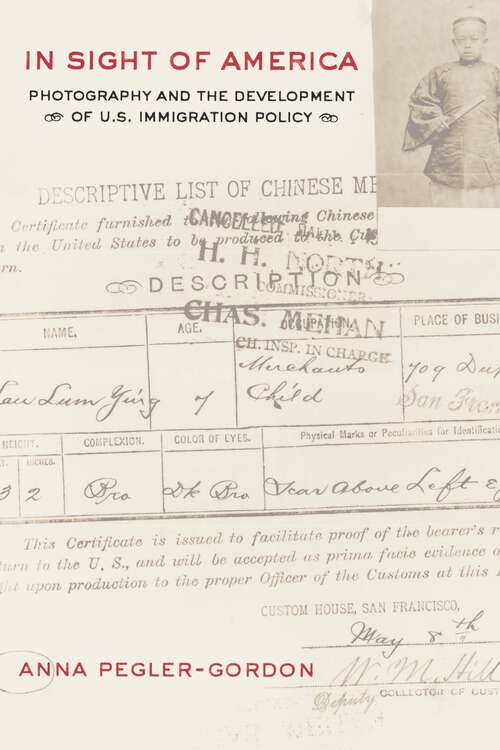 IN SIGHT OF AMERICA
PHOTOGRAPHY AND THE DEVELOPMENT
OF U.S. IMMIGRATION POLICY
DESCRIPTIVE LIST OF CHINESE ME
Certificate furnished to following Chinese
the United States to be produced to the Cu
rn.
CANCELLED
H. H. NORTH
COMMISSIONER
DESCRIPTION
CHAS. MEHAN
CH. INSP. IN CHARGE
NAME. AGE. OCCUPATION. PLACE OF BUSI
Lau Lum Ying 7 Merchants Child 709 Dup
San Fran
HEIGHT. COMPLEXION. COLOR OF EYES. Physical Marks or Peculiarities for Identificati
INCHES.
3 2 Bro Dk Bro Scar Above Left E
This Certificate is issued to facilitate proof of the bearer's r
turn to the U. S., and will be accepted as prima facie evidence o
ght upon production to the proper Officer of the Customs at this
CUSTOM HOUSE, SAN FRANCISCO,
May 8th
ANNA PEGLER-GORDON
W. M. Hill
Deputy COLLECTOR OF CUST